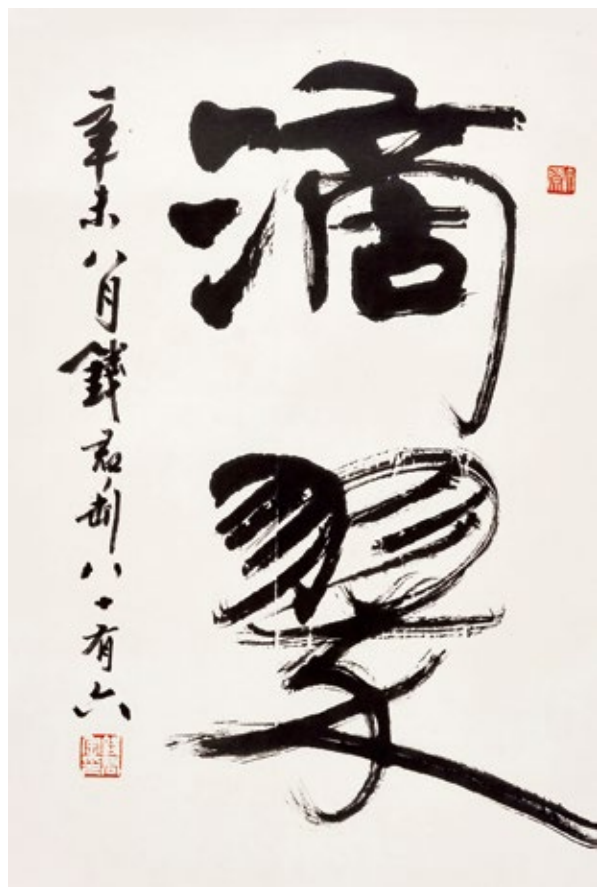 滴翠
辛未八月錢君匋八十有六